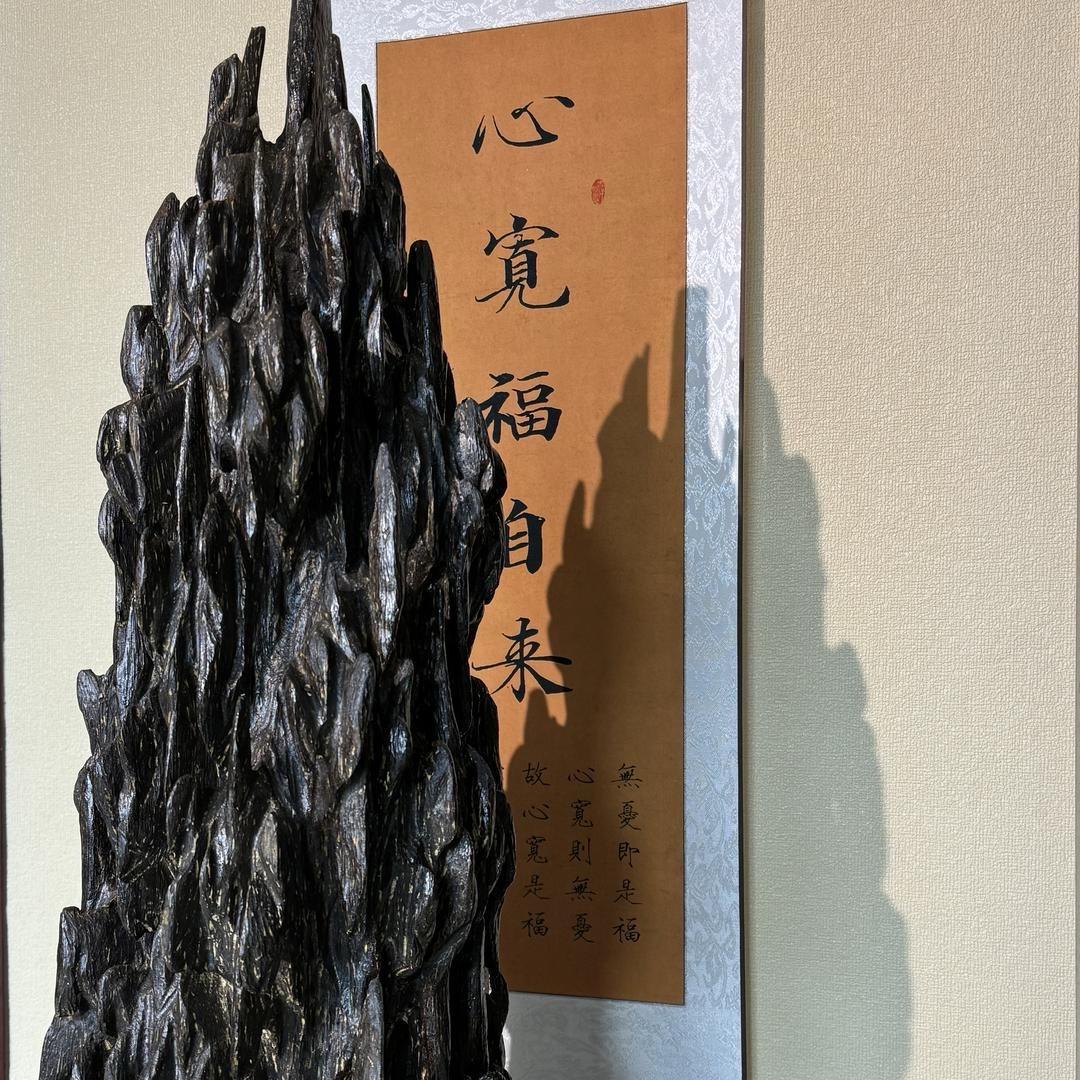 心寬福自来
無憂即是福
心寬則無憂
故心寬是福